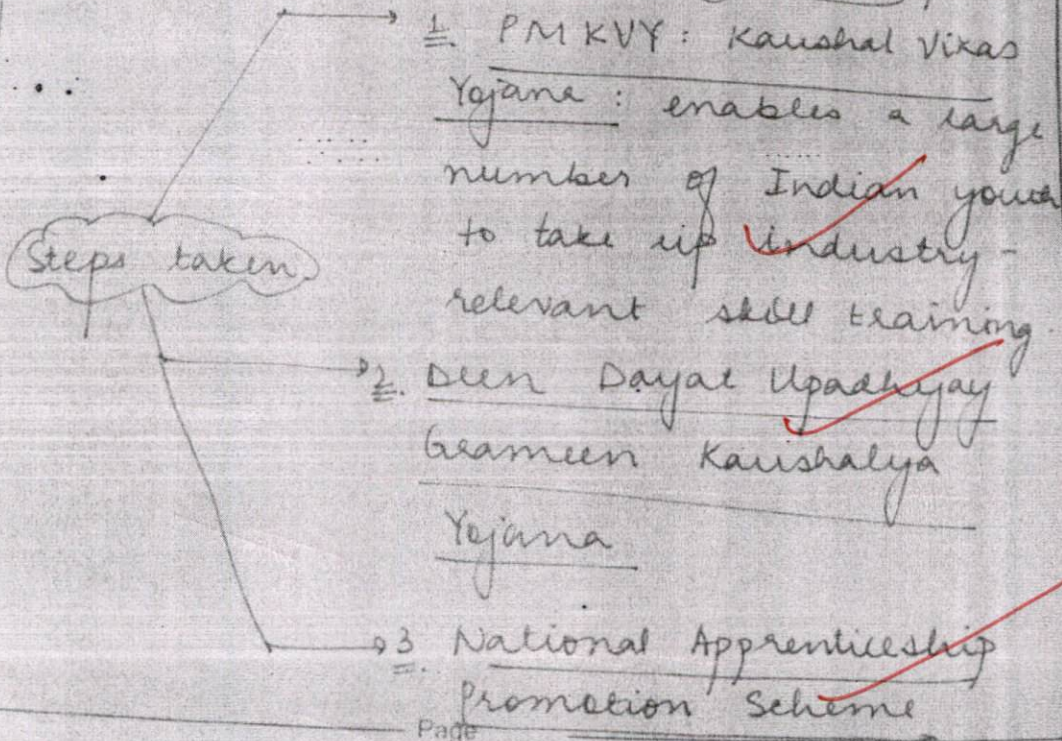 1. PMKVY: Kaushal Vikas
Yojana: enables a large
number of Indian youth
to take up industry-
relevant skill training
Steps taken
2. Deen Dayal Upadhyay
Grameen Kaushalya
Yojana
3. National Apprenticeship
Promotion Scheme
Page